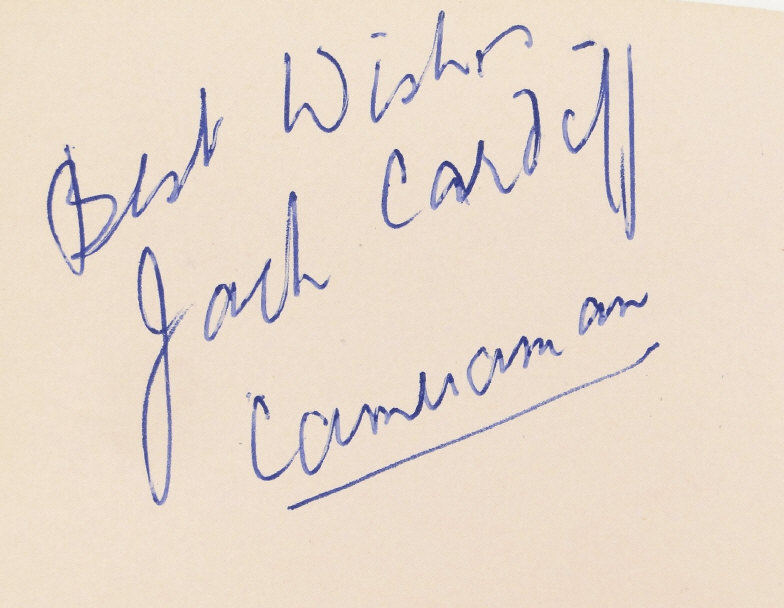 Best Wishes
Jack Cardiff
Cameraman